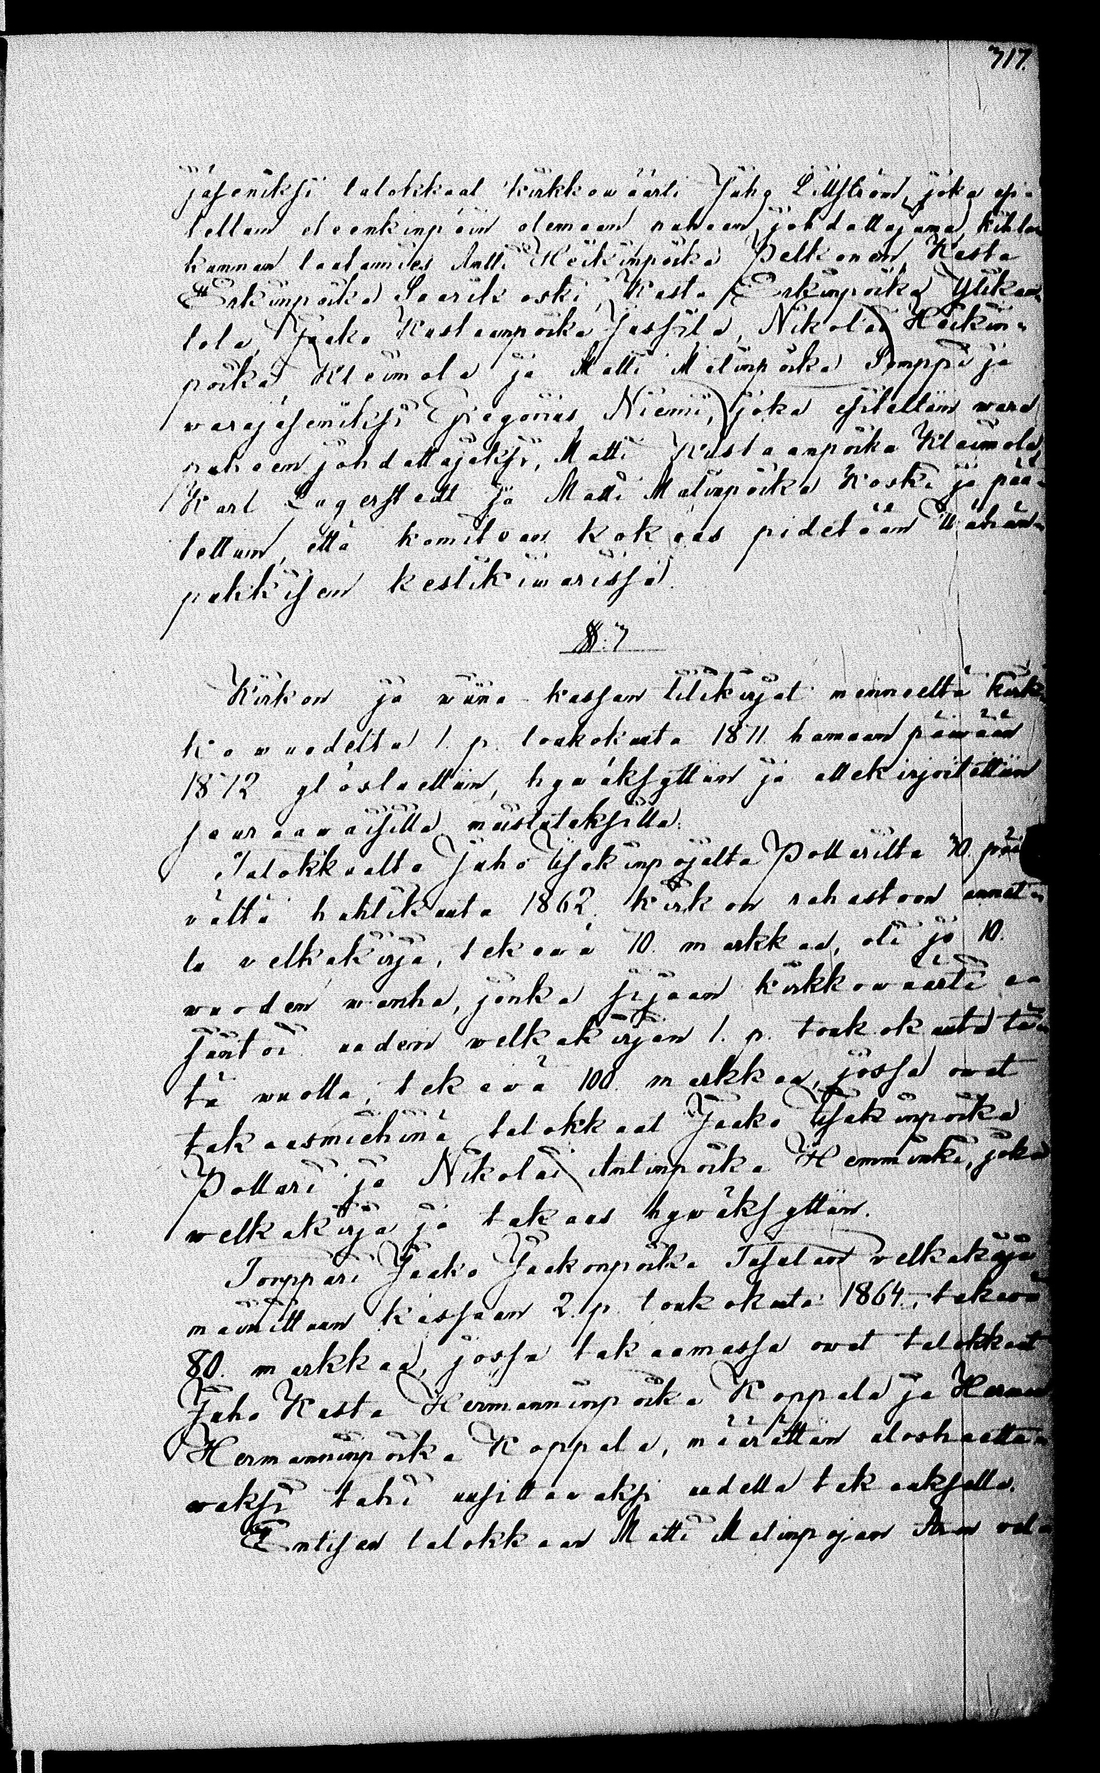 317.
jäseniksi talokkaat kirkkowäärti Juho Lillström, joka esi-
tettiin eteenkinpäin olemaan puheen johdattajana, kihla-
kunnan lautamies Antti Heikinpoika Pelkonen Kusta
Erkinpoika Saarikoski, Kusta Erkinpoika Ylikau-
lola, Jaako Kustaanpoika Jussila, Nikolai Heikin-
poika Kleimola ja Matti Matinpoika Somppi ja
warajäseniksi Gregorius Niemi, joka esitettiin wara
puheen johdattajaksi, Matti Kustaanpoika Kleimola,
Karl Lagerstedt ja Matti Matinpoika Koski ja pää-
tettiin, että komitean kokous pidetään Wähän-
pakkisen kestikiwarissa.
§. 7
Kirkon ja wiina kassan tilikirjat menneeltä kirk-
kowuodelta 1. p. toukokuuta 1871 hamaan päiwään
1872 ylösluettiin, hywäksyttiin ja allekirjoitettiin
seuraawaisilla muistutuksilla:
Talokkaalta Juho Isakinpojalta Pottarilta 30. päi-
vältä huhtikuuta 1862 kirkon rahastoon annet-
tu velkakirja, tekevä 70. markkaa, oli jo 10.
wuoden wanha, jonka sijaan kirkkowäärti
uuden welkakirjan 1. p. toukokuuta tä-
tä wuotta, tekevä 100 markkaa, jossa owat
takausmiehinä talokkaat Jaako Isakinpoika
Pottari ja Nikolai Antinpoika Hemminki, joka
welkakirja ja takaus hywäksyttiin.
Torppari Jaako Jaakonpoika Tasalan velkakirja
mainittuun kassaan 2. p. toukokuuta 1864, tekevä
80. markkaa, jossa takaamassa owat talokkaat
Juho Kusta Hermanninpoika Koppala ja Herman
Hermanninpoika Koppala, määrättiin uloshaetta-
waksi tahi uusittawaksi uudella takauksella.
Entisen talokkaan Matti Matinpojan Aron vel-